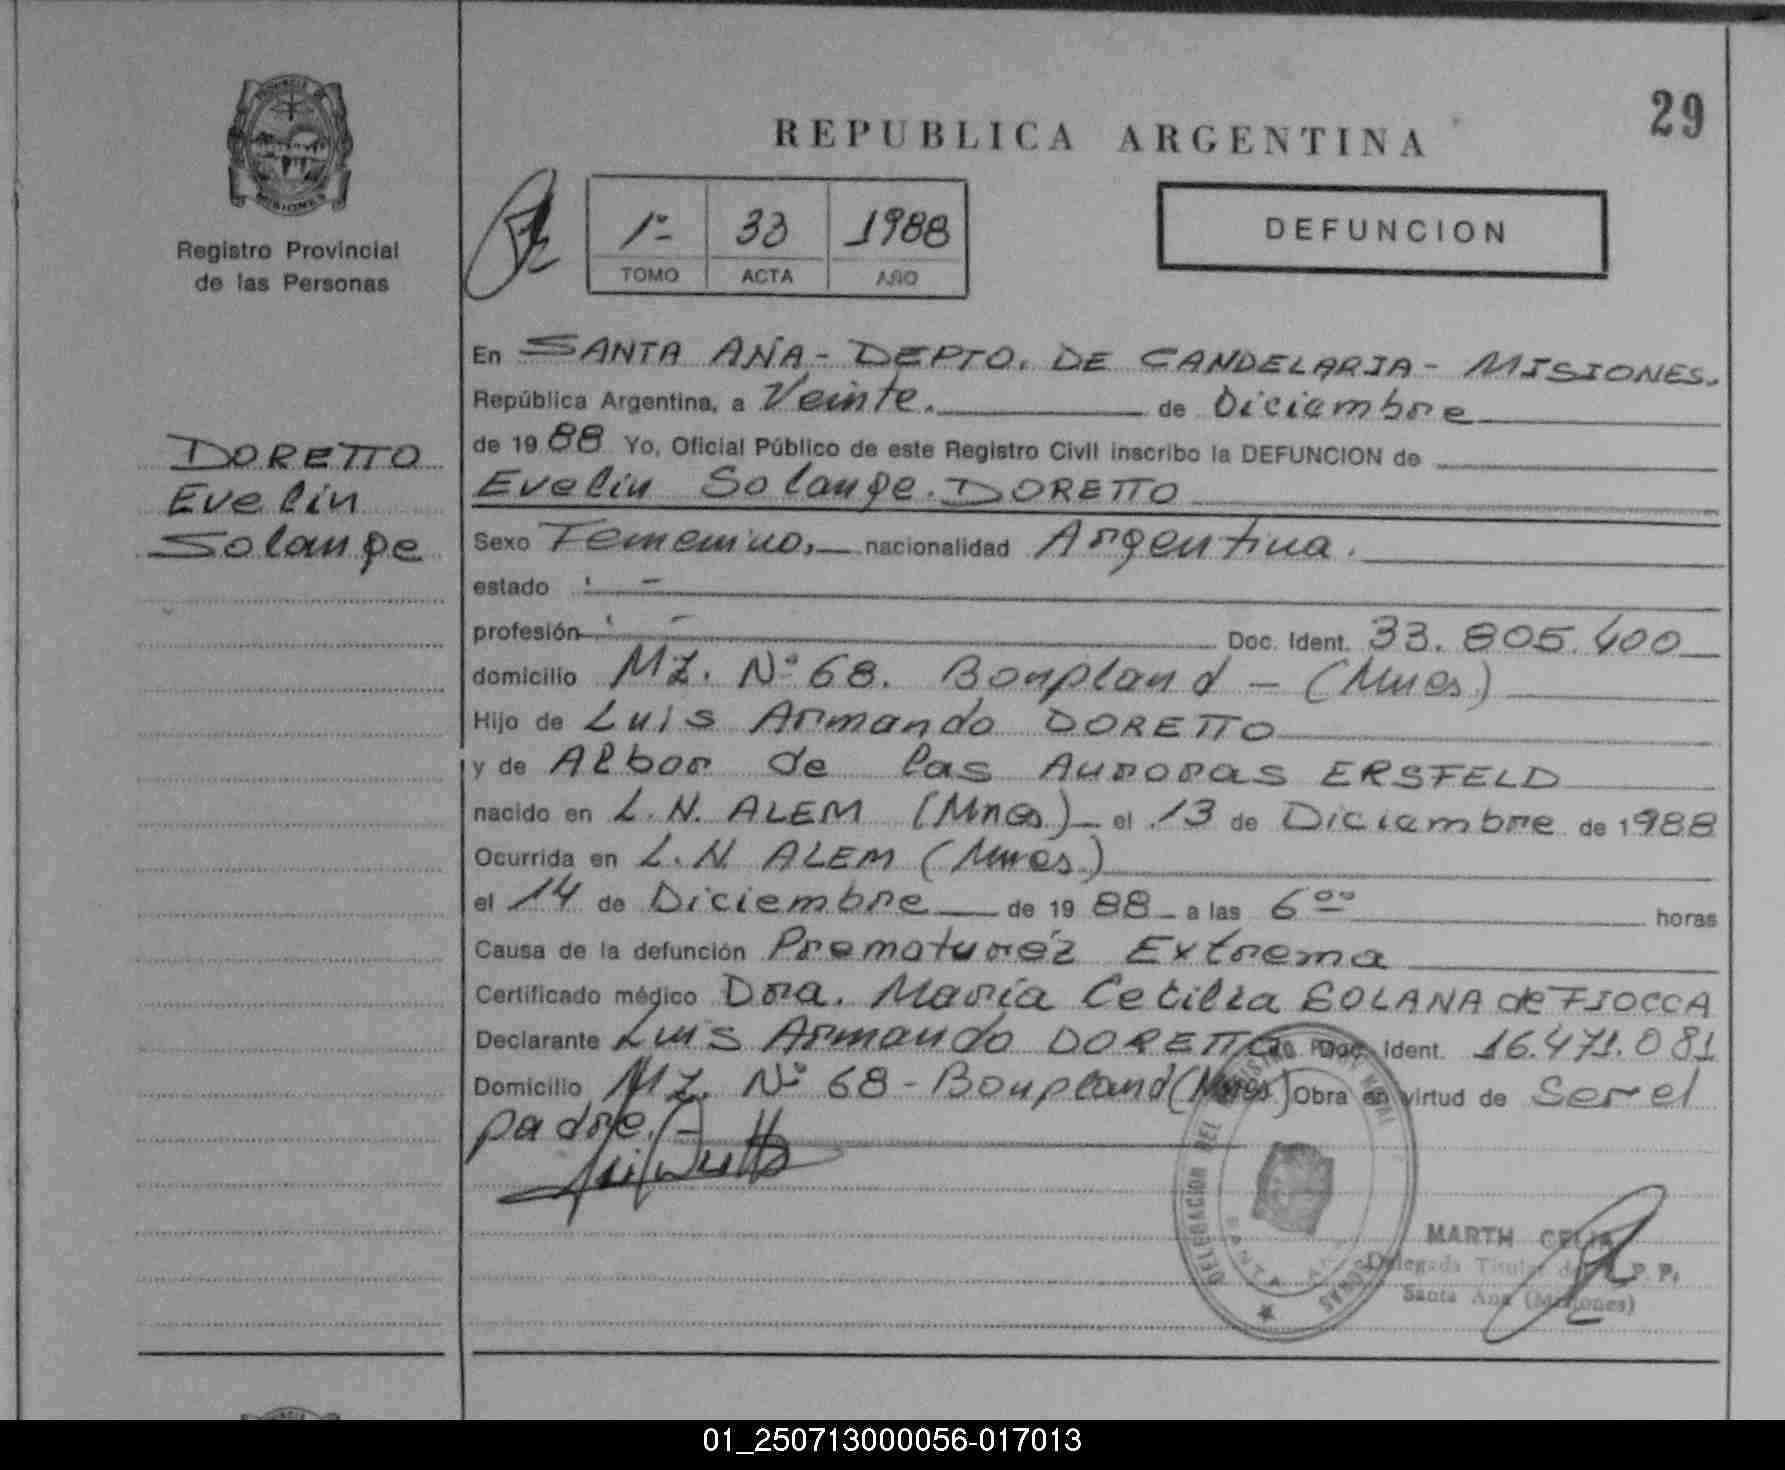 29
REPUBLICA ARGENTINA
PROVINCIA DE
MISIONES
Registro Provincial
de las Personas
1º 33 1988
TOMO ACTA AÑO
DEFUNCION
DORETTO
Evelin
Solange
En SANTA ANA - DEPTO. DE CANDELARIA - MISIONES.
República Argentina, a Veinte. de Diciembre
de 1988 Yo, Oficial Público de este Registro Civil inscribo la DEFUNCION de
Evelin Solange. DORETTO
Sexo Femenino, nacionalidad Argentina.
estado -
profesión - Doc. Ident. 33.805.400
domicilio MZ. Nº 68. Bonpland - (Mnes)
Hijo de Luis Armando DORETTO
y de Albor de las Auroras ERSFELD
nacido en L. N. ALEM (Mnes) el 13 de Diciembre de 1988
Ocurrida en L. N. ALEM (Mnes)
el 14 de Diciembre de 19 88 a las 6 00 horas
Causa de la defunción Prematuréz Extrema
Certificado médico Dra. María Cecilia SOLANA de FIOCCA
Declarante Luis Armando DORETTO Doc. Ident. 16.471.081
Domicilio MZ. Nº 68 - Bonpland (Mnes) Obra en virtud de Ser el
padre.
DELEGACION DEL REGISTRO
SANTA ANA
MARTH CELIA
Delegada Titular P. P.
Santa Ana (Misiones)
01_250713000056-017013